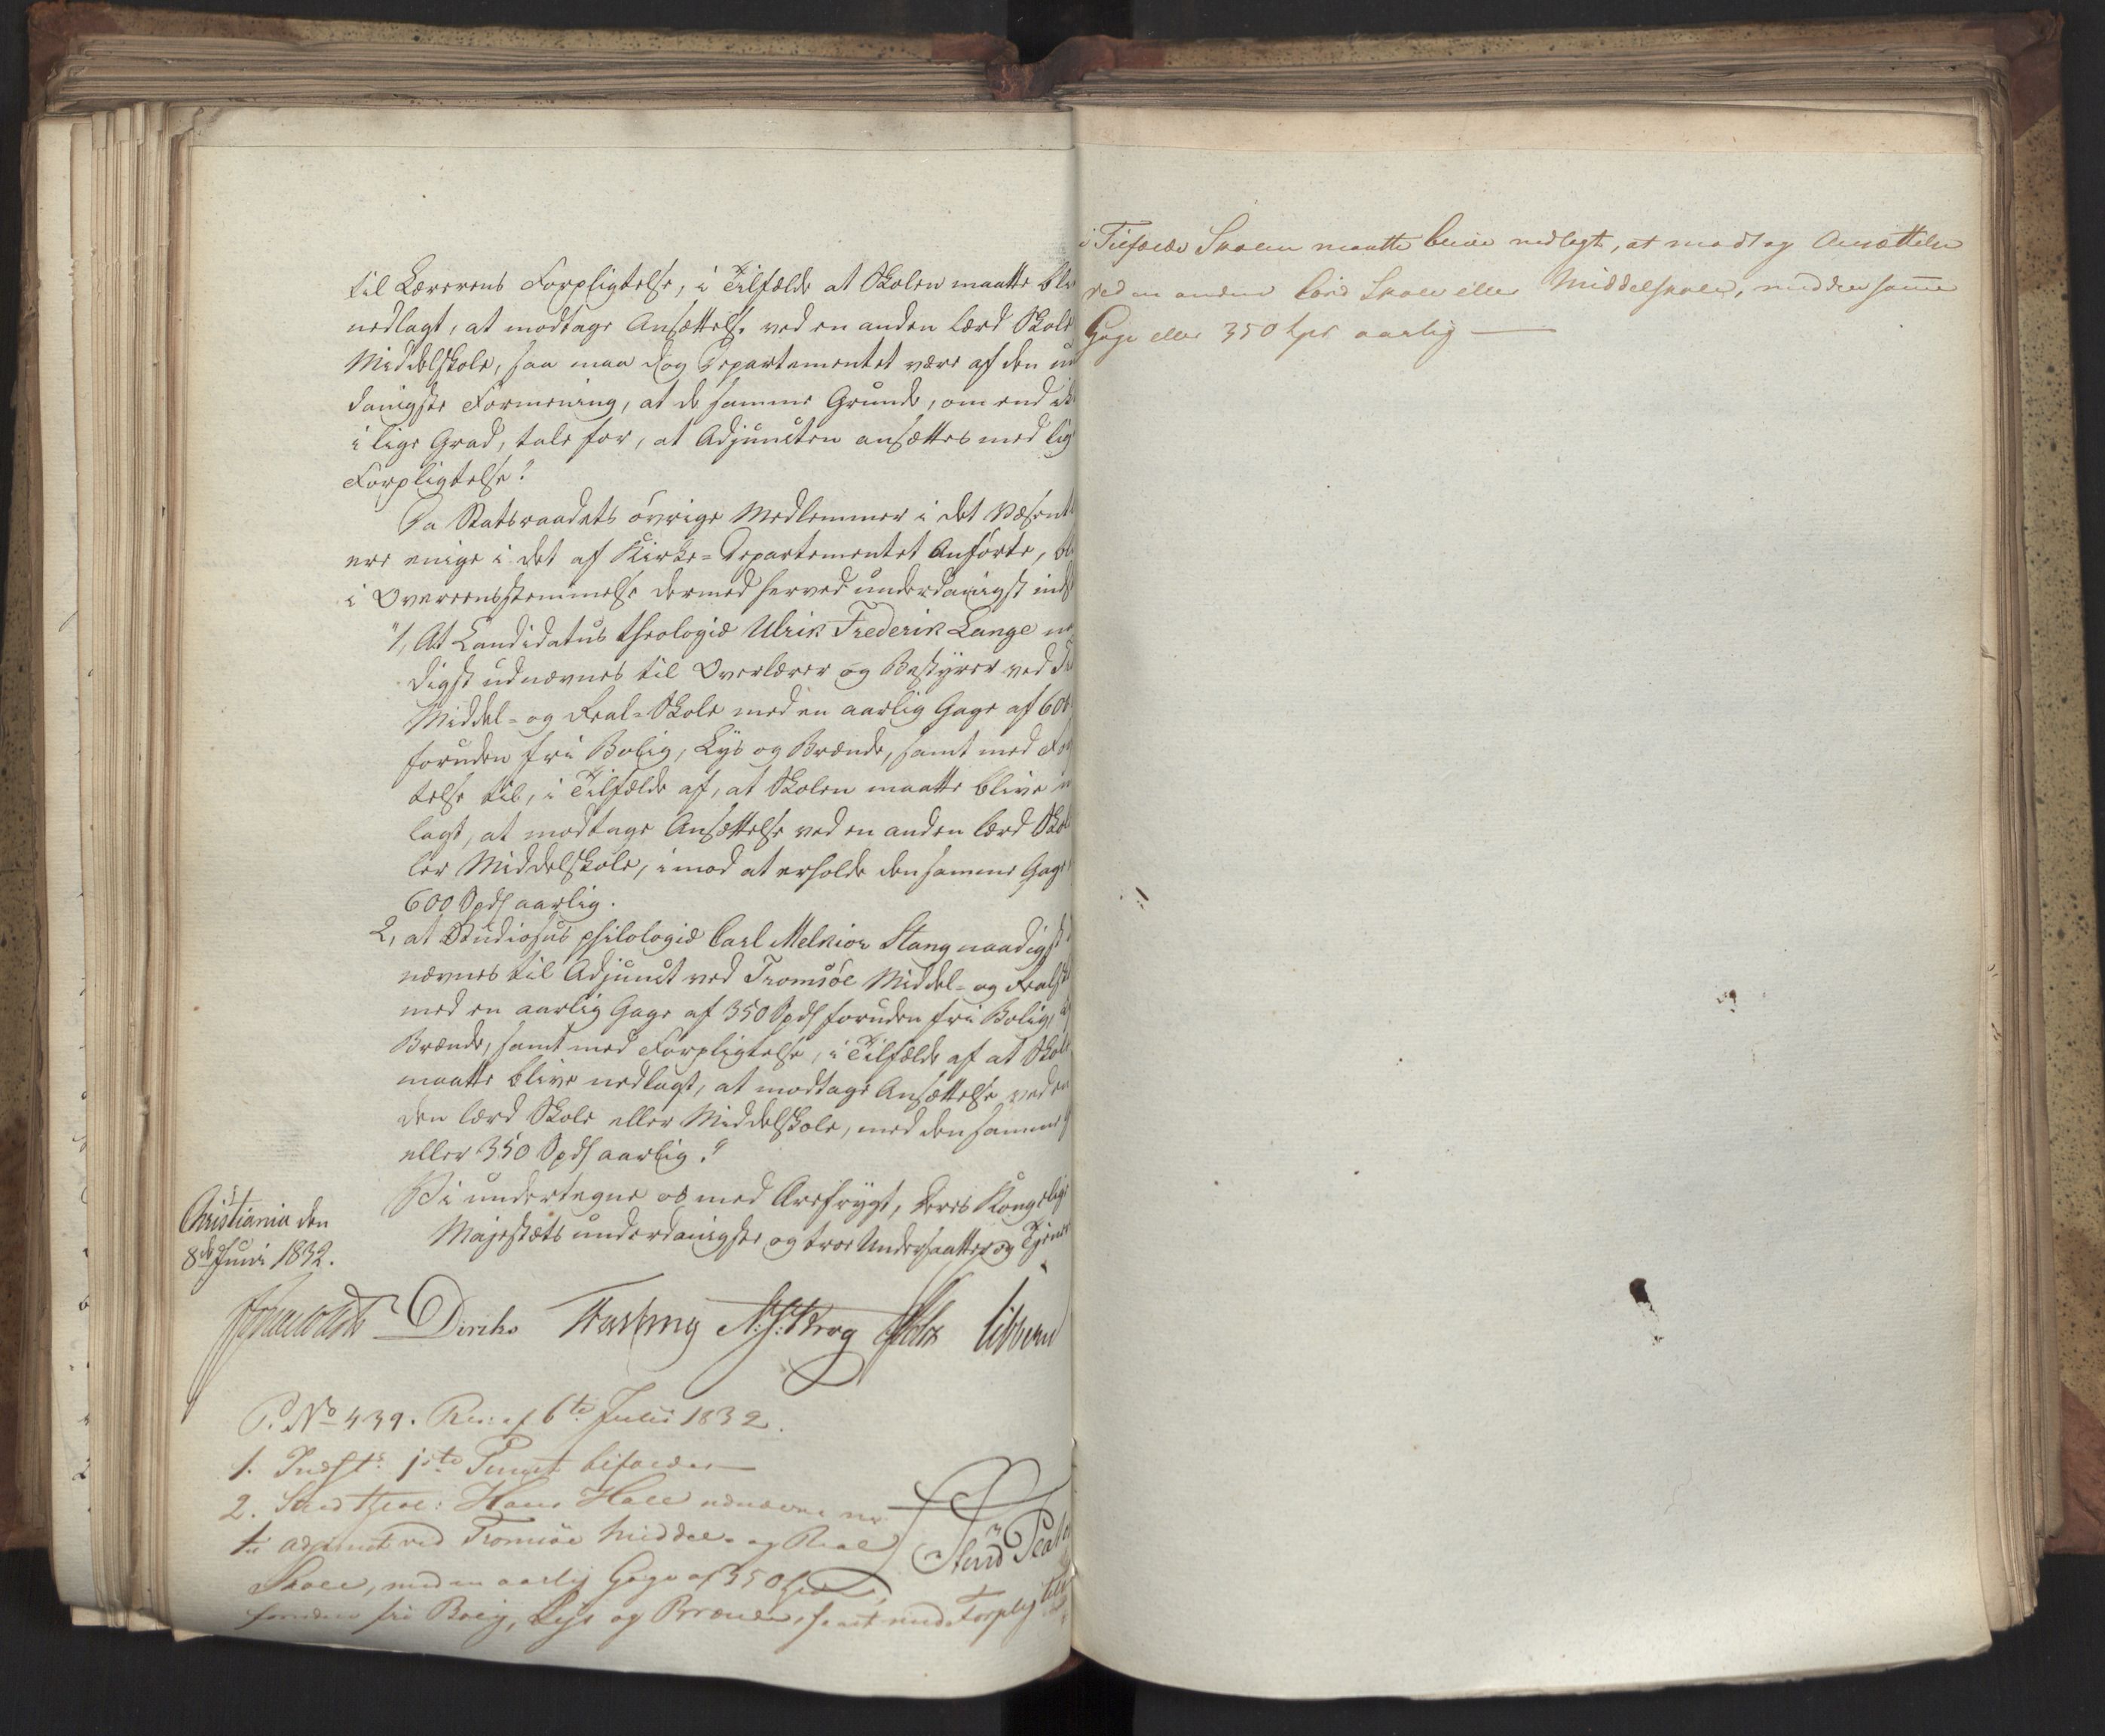 til Lærerens Forpligtelse, i Tilfælde at Skolen maatte bli
nedlagt, at modtage Ansættelse ved en anden lærd Skole
Middelskole, saa maa dog Departementet være af den un
danigste Formening, at de samme Grunde, om end ik
i lige Grad, tale for, at Adjuncten ansættes med lig
Forpligtelse."
Da Statsraadets övrige Medlemmer i det Væsent
ere enige i det af Kirke-Departementet Anförte, bl
i Overeensstemmelse dermed herved underdanigst inds
"1, At Candidatus theologiæ Ulrik Frederik Lange na
digst udnævnes til Overlærer og Bestyrer ved
Middel- og Real-Skole med en aarlig Gage af 600
foruden fri Bolig, Lys og Brænde, samt med For
telse til, i Tilfælde af, at Skolen maatte blive n
lagt, at modtage Ansættelse ved en anden lærd Skol
ler Middelskole, imod at erholde den samme Gage
600 Spds aarlig.
2, at Studiosus philologiæ Carl Melkior Stang naadigst
nævnes til Adjunct ved Tromsöe Middel- og Realsk
med en aarlig Gage af 350 Spds foruden fri Bolig,
Brænde, samt med Forpligtelse, i Tilfælde af at Skole
maatte blive nedlagt, at modtage Ansættelse ved en
den lærd Skole eller Middelskole, med den samme G
eller 350 Spds aarlig."
Vi undertegne os med Ærefrygt, Deres Kongelige
Majestæts underdanigste og troe Undersaatter og Tjener
Christiania den
8de Juni 1832.
Diriks Fasting N:J:Krog Holst Vibbern
P. No 439. Res: af 6te Julii 1832.
1. Indst: 1ste Punct bifaldes
2. Stud theol: Hans Hall udnævnes
til Adjunct ved Tromsöe Middel- og Real
Skole, med en aarlig Gage af 350 Spd
foruden fri Bolig, Lys og Brænde, samt med Forpligtelse
i Tilfælde Skolen maatte blive nedlagt, at modtage Ansættelse
ved en anden lærd Skole eller Middelskole, med den samme
Gage eller 350 Spd aarlig —